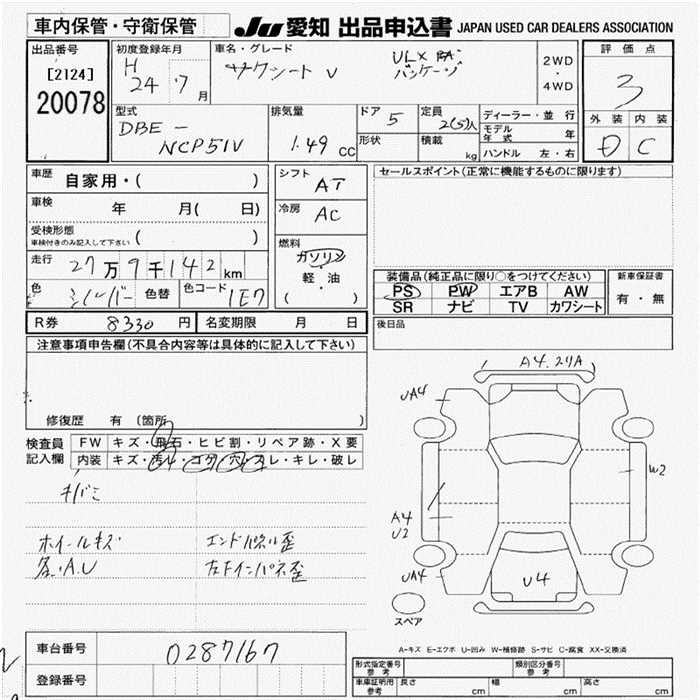 車内保管・守衛保管
JU 愛知 出品申込書 JAPAN USED CAR DEALERS ASSOCIATION
出品番号
[2124]
20078
初度登録年月
H
24 ・ 7 月
車名・グレード
サクシート V
ULX
パッケージ
2WD
・
4WD
評価点
3
外装 内装
D C
型式
DBE -
NCP51V
排気量
1.49 cc
ドア 5
形状
定員 2(5)人
積載 kg
ディーラー・並行
モデル年式 年
ハンドル 左・右
車歴 自家用・( )
車検 年 月( 日)
受検形態
車検付きのみ記入して下さい ( )
走行 27万9千142km
色 シルバー 色替 色コード 1E7
シフト AT
冷房 AC
燃料
ガソリン
軽・油
( ・ )
セールスポイント(正常に機能するものに限ります)
装備品(純正品に限り○をつけてください)
PS PW エアB AW
SR ナビ TV カワシート
新車保証書
有・無
R券 8330 円 名変期限 月 日
後日品
注意事項申告欄(不具合内容等は具体的に記入して下さい)
修復歴 有 (箇所 )
検査員記入欄
FW キズ・飛石・ヒビ割・リペア跡・X要
内装 キズ・汚れ・コゲ・穴・スレ・キレ・破レ
キバミ
ホイールキズ エンドパネル歪
各.A.U 左フインパネ歪
A4.2リA
UA4
W2
A4
U2
UA4
U4
スペア
A-キズ E-エクボ U-凹み W-補修跡 S-サビ C-腐食 XX-交換済
車台番号 0287167
登録番号
形式指定番号 参考
類別区分番号 参考
車庫証明用 参考 長さ cm 幅 cm 高さ cm